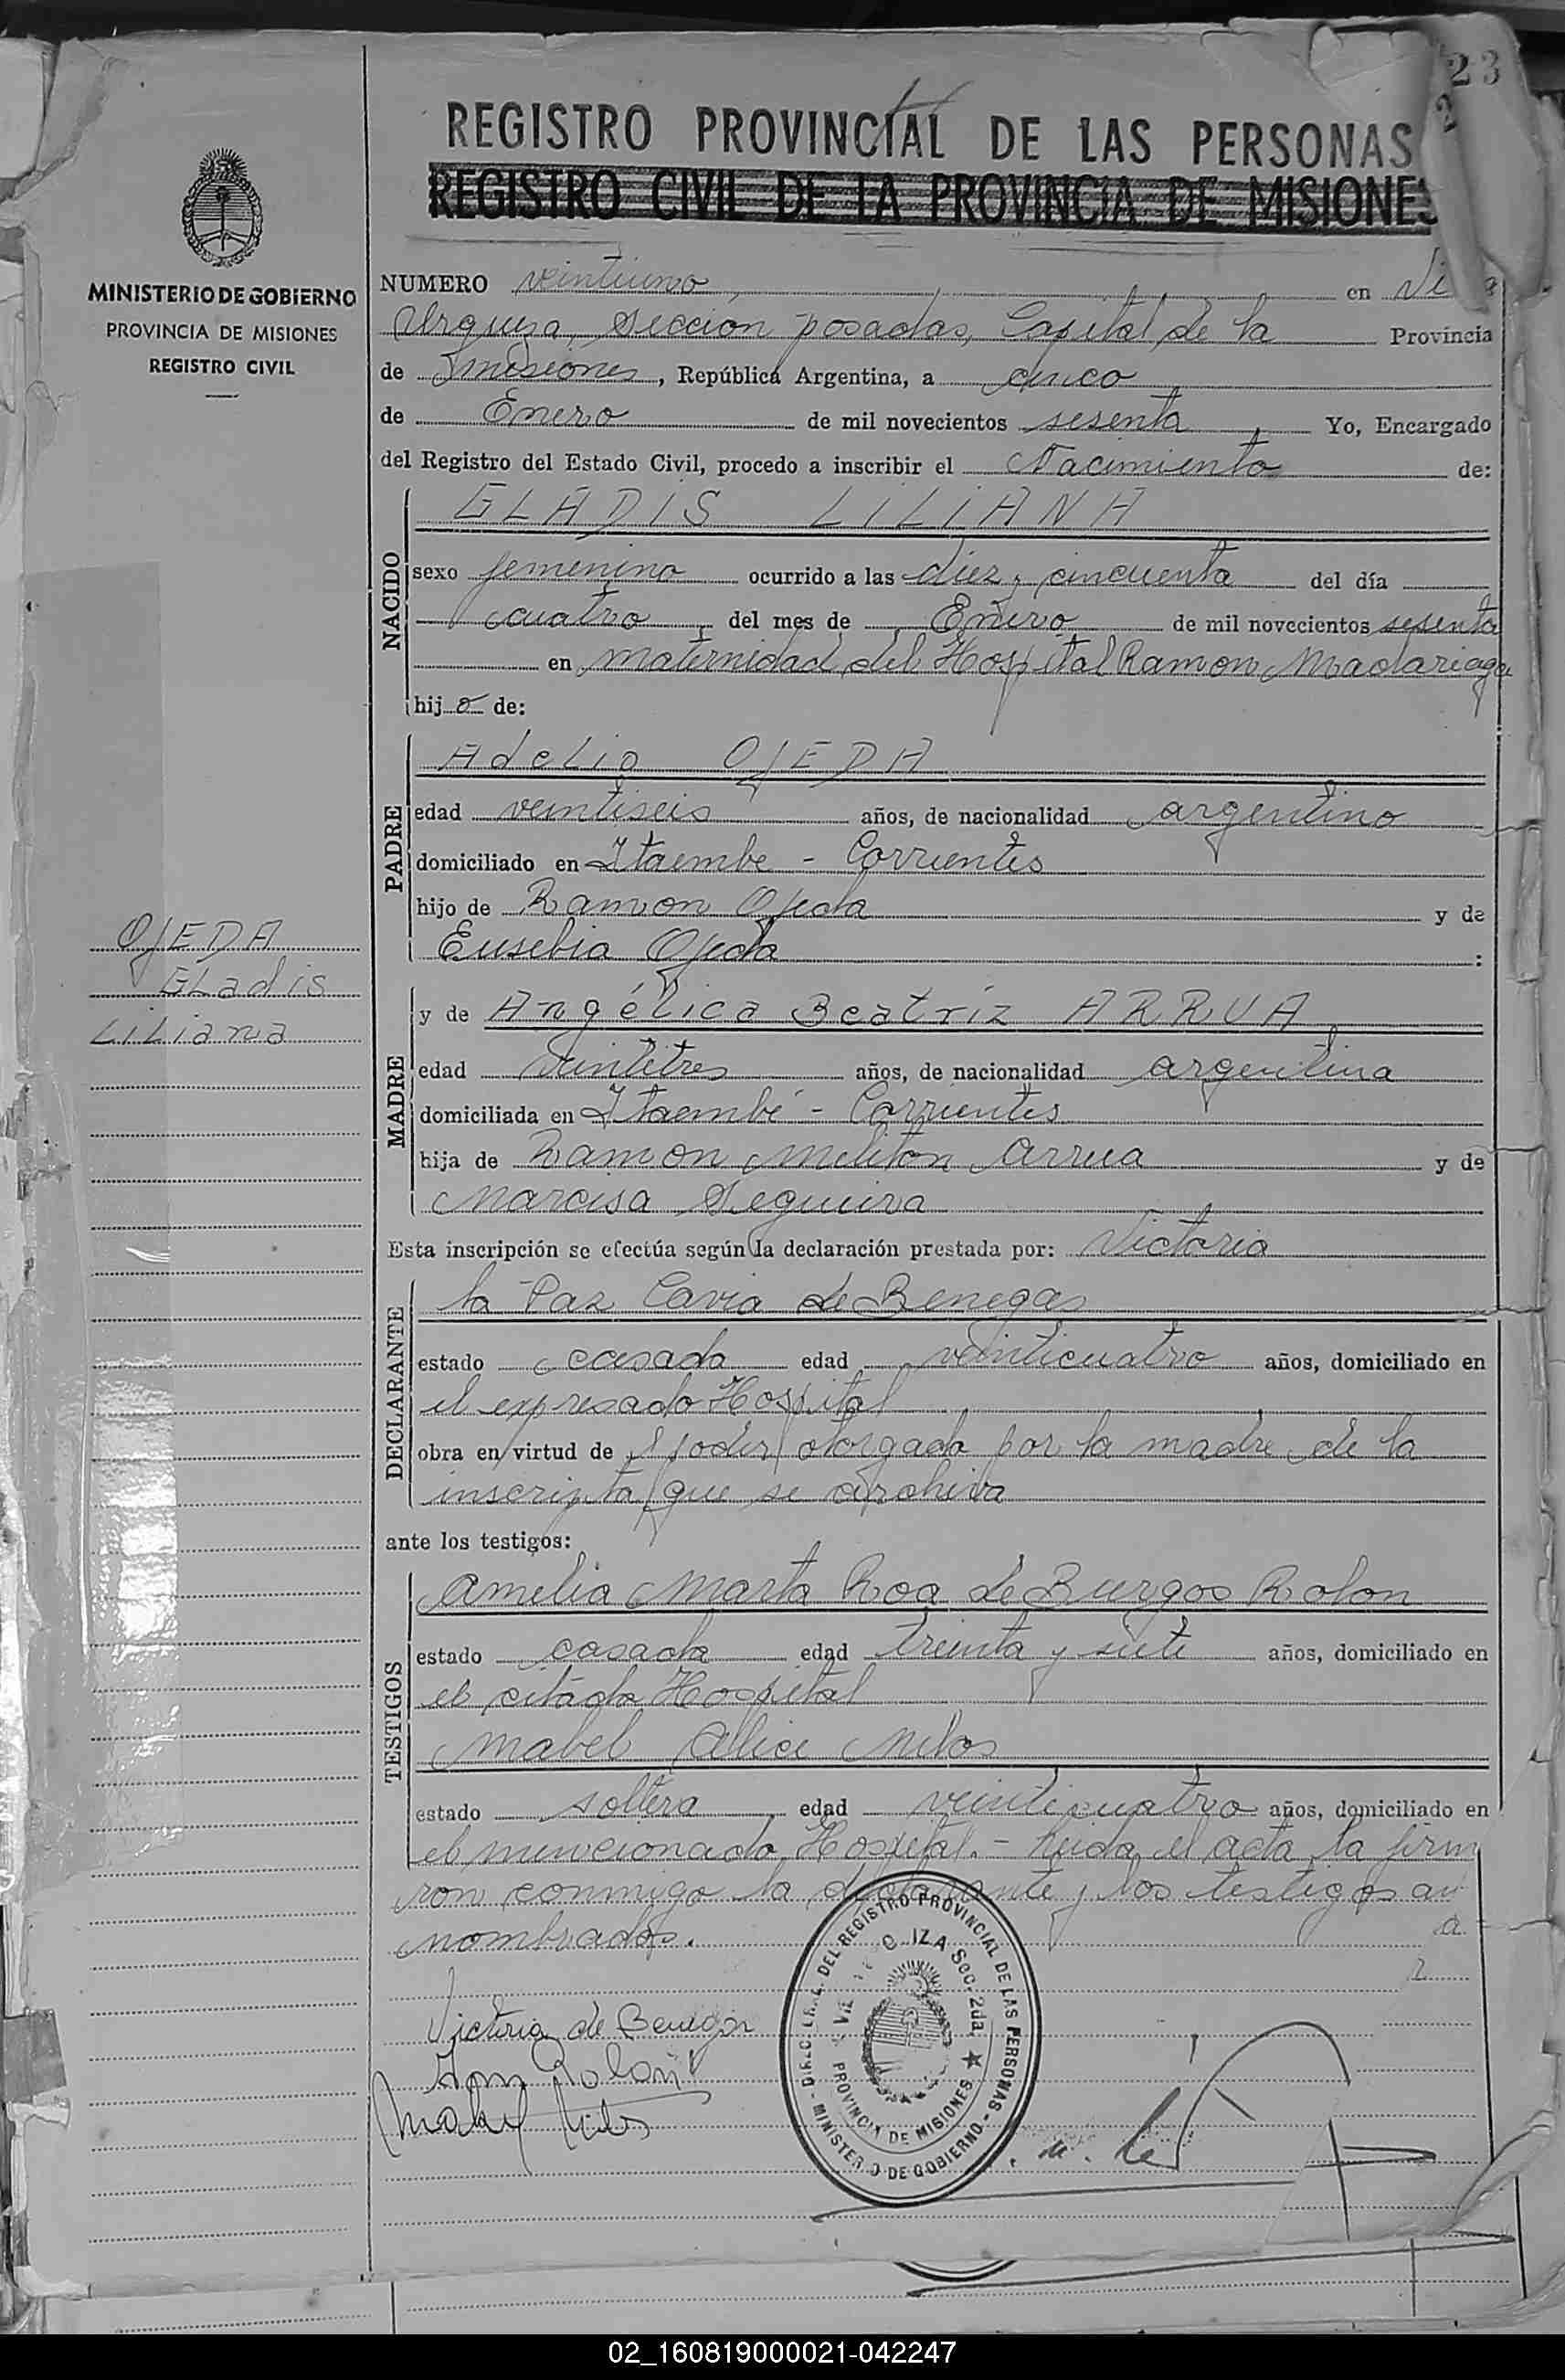 23
REGISTRO PROVINCIAL DE LAS PERSONAS
REGISTRO CIVIL DE LA PROVINCIA DE MISIONES
MINISTERIO DE GOBIERNO
PROVINCIA DE MISIONES
REGISTRO CIVIL
NUMERO veintiuno en
Urquiza, Seccion posadas, Capital de la Provincia
de Misiones, República Argentina, a cinco
de Enero de mil novecientos sesenta Yo, Encargado
del Registro del Estado Civil, procedo a inscribir el Nacimiento de:
NACIDO
GLADIS LILIANA
sexo femenino ocurrido a las diez y cincuenta del día
cuatro del mes de Enero de mil novecientos sesenta
en maternidad del Hospital Ramon Madariaga
hija de:
PADRE
Adelio OJEDA
edad veintiseis años, de nacionalidad argentino
domiciliado en Itaembe - Corrientes
hijo de Ramon Ojeda y de
Eusebia Ojeda :
OJEDA
GLadis
LiLiana
MADRE
y de Angélica Beatríz ARRUA
edad veintitres años, de nacionalidad argentina
domiciliada en Itaembé - Corrientes
hija de Ramon Meliton Arrua y de
Narcisa Segueira
Esta inscripción se efectúa según la declaración prestada por: Victoria
DECLARANTE
la Paz Cavia de Benegas
estado casada edad veinticuatro años, domiciliado en
el expresado Hospital
obra en virtud de poder otorgado por la madre de la
inscripta que se archiva
ante los testigos:
TESTIGOS
Amelia Marta Roa de Burgos Rolon
estado casada edad treinta y siete años, domiciliado en
el citado Hospital
Mabel Alice
estado soltera edad veinticuatro años, domiciliado en
el mencionado Hospital. - Leida el acta la firm
ron conmigo la declarante y los testigos an
nombrados.
DEL REGISTRO PROVINCIAL DE LAS PERSONAS
MINISTERIO DE GOBIERNO
Sec. 2da.
PROVINCIA DE MISIONES
Victoria de Benegas
Rolon
Mabel
02_160819000021-042247